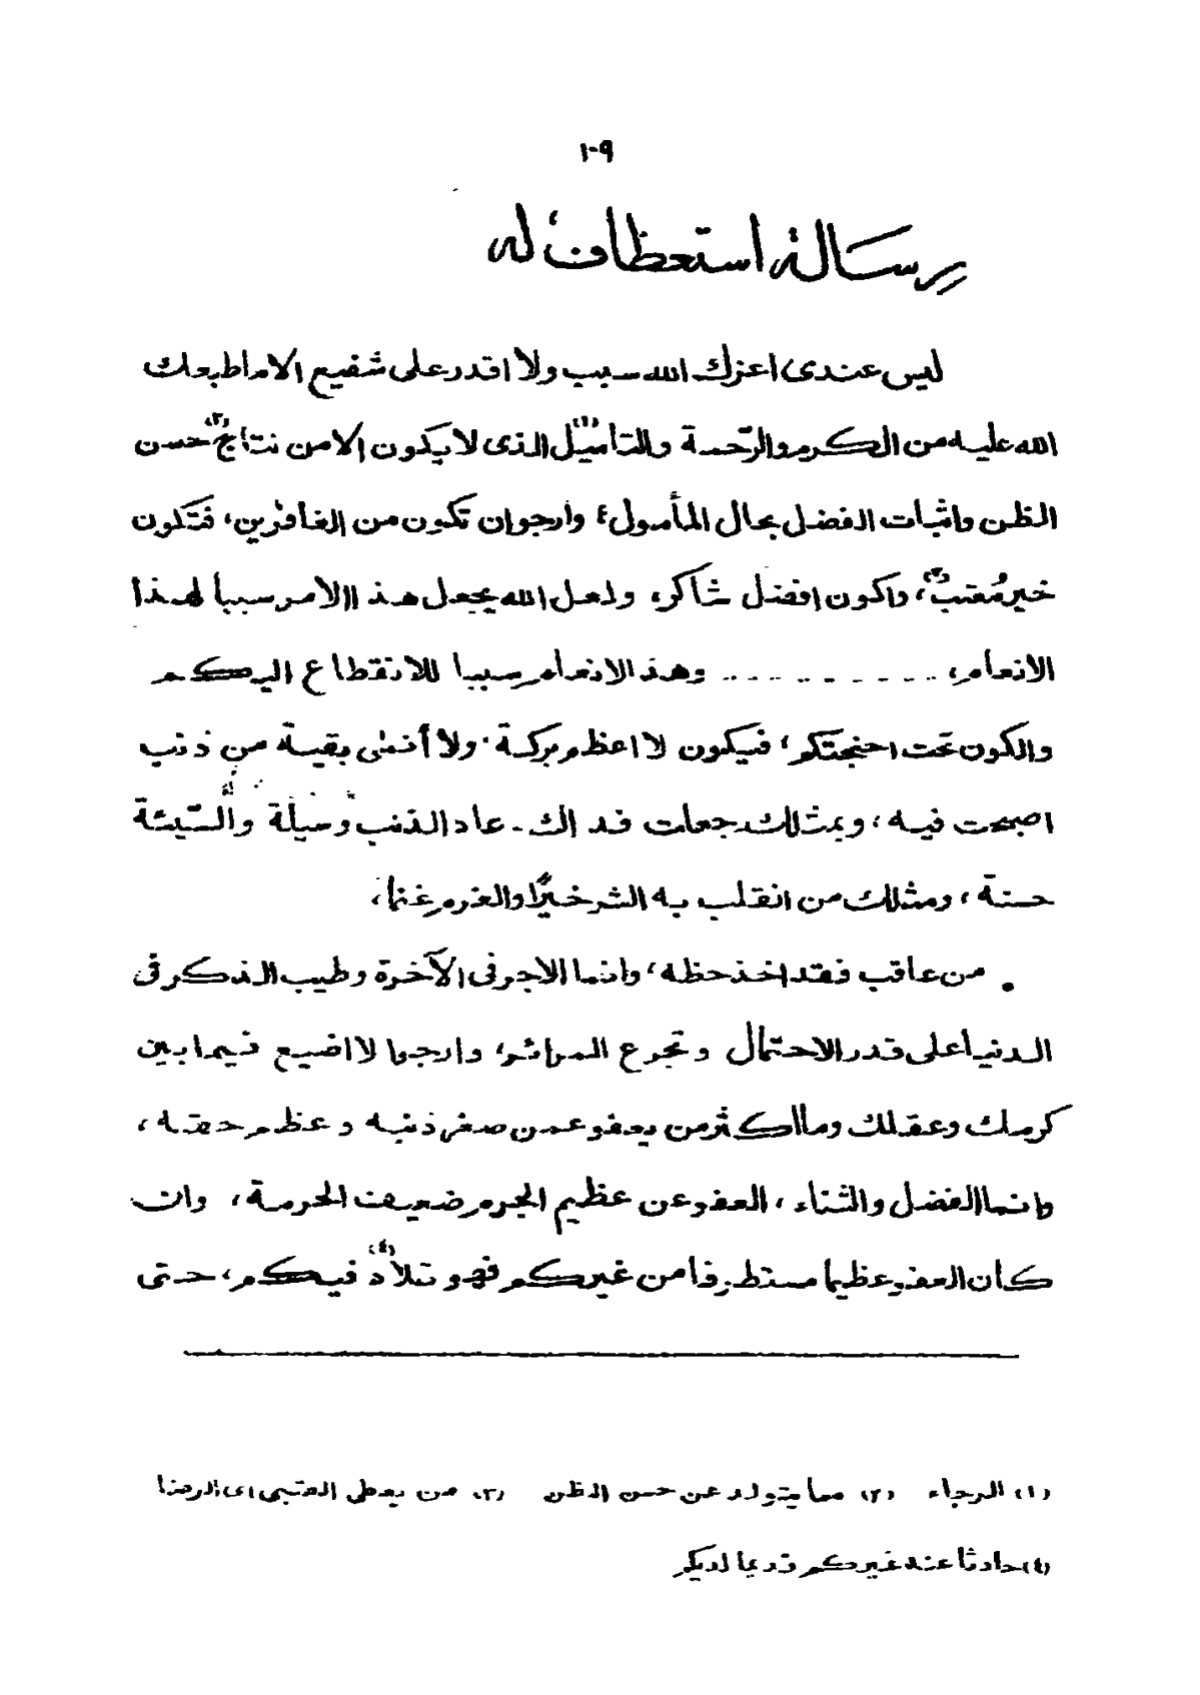 ١٠٩
رسالة استعطاف له
ليس عندى اعزك الله سبب ولا اقدر على شفيع الا ما طبعك
الله عليه من الكرم والرّحمة والتأميل(١) الذى لا يكون الا من نتاج(٢) حسن
الظن واثبات الفضل بحال المأمول؛ وأرجوان تكون من الغافرين، فتكون
خير مُعْتِب(٣)، واكون افضل شاكر، ولعل الله يجعل هذا الامر سببا لهذا
الانعام، .......... وهذا الانعام سببا للانقطاع اليكم
والكون تحت اجنحتكم، فيكون لا اعظم بركة. ولا أنمى بقية من ذنب
اصبحت فيه، وبمثلك جعلت فداك - عاد الذنب وسيلة والسّيئة
حسنة، ومثلك من انقلب به الشر خيرًا والغرم غنما،
من عاقب فقد اخذ حظه، وانما الاجر فى الآخرة وطيب الذكر فى
الدنيا على قدر الاحتمال وتجرع المرائر، وارجو الا اضيع فيما بين
كرمك وعقلك وما اكثر من يعفو عمن صغر ذنبه وعظم حقه،
وانما الفضل والثناء، العفو عن عظيم الجرم ضعيف الحرمة، وان
كان العفو عظيما مستطرفا من غيركم فهو تلاد(٤) فيكم، حتى
(١) الرجاء (٢) مما يتولد عن حسن الظن (٣) من يعطى العتبى اى الرضا
(٤) حادثا عند غيركم قديما لديكم